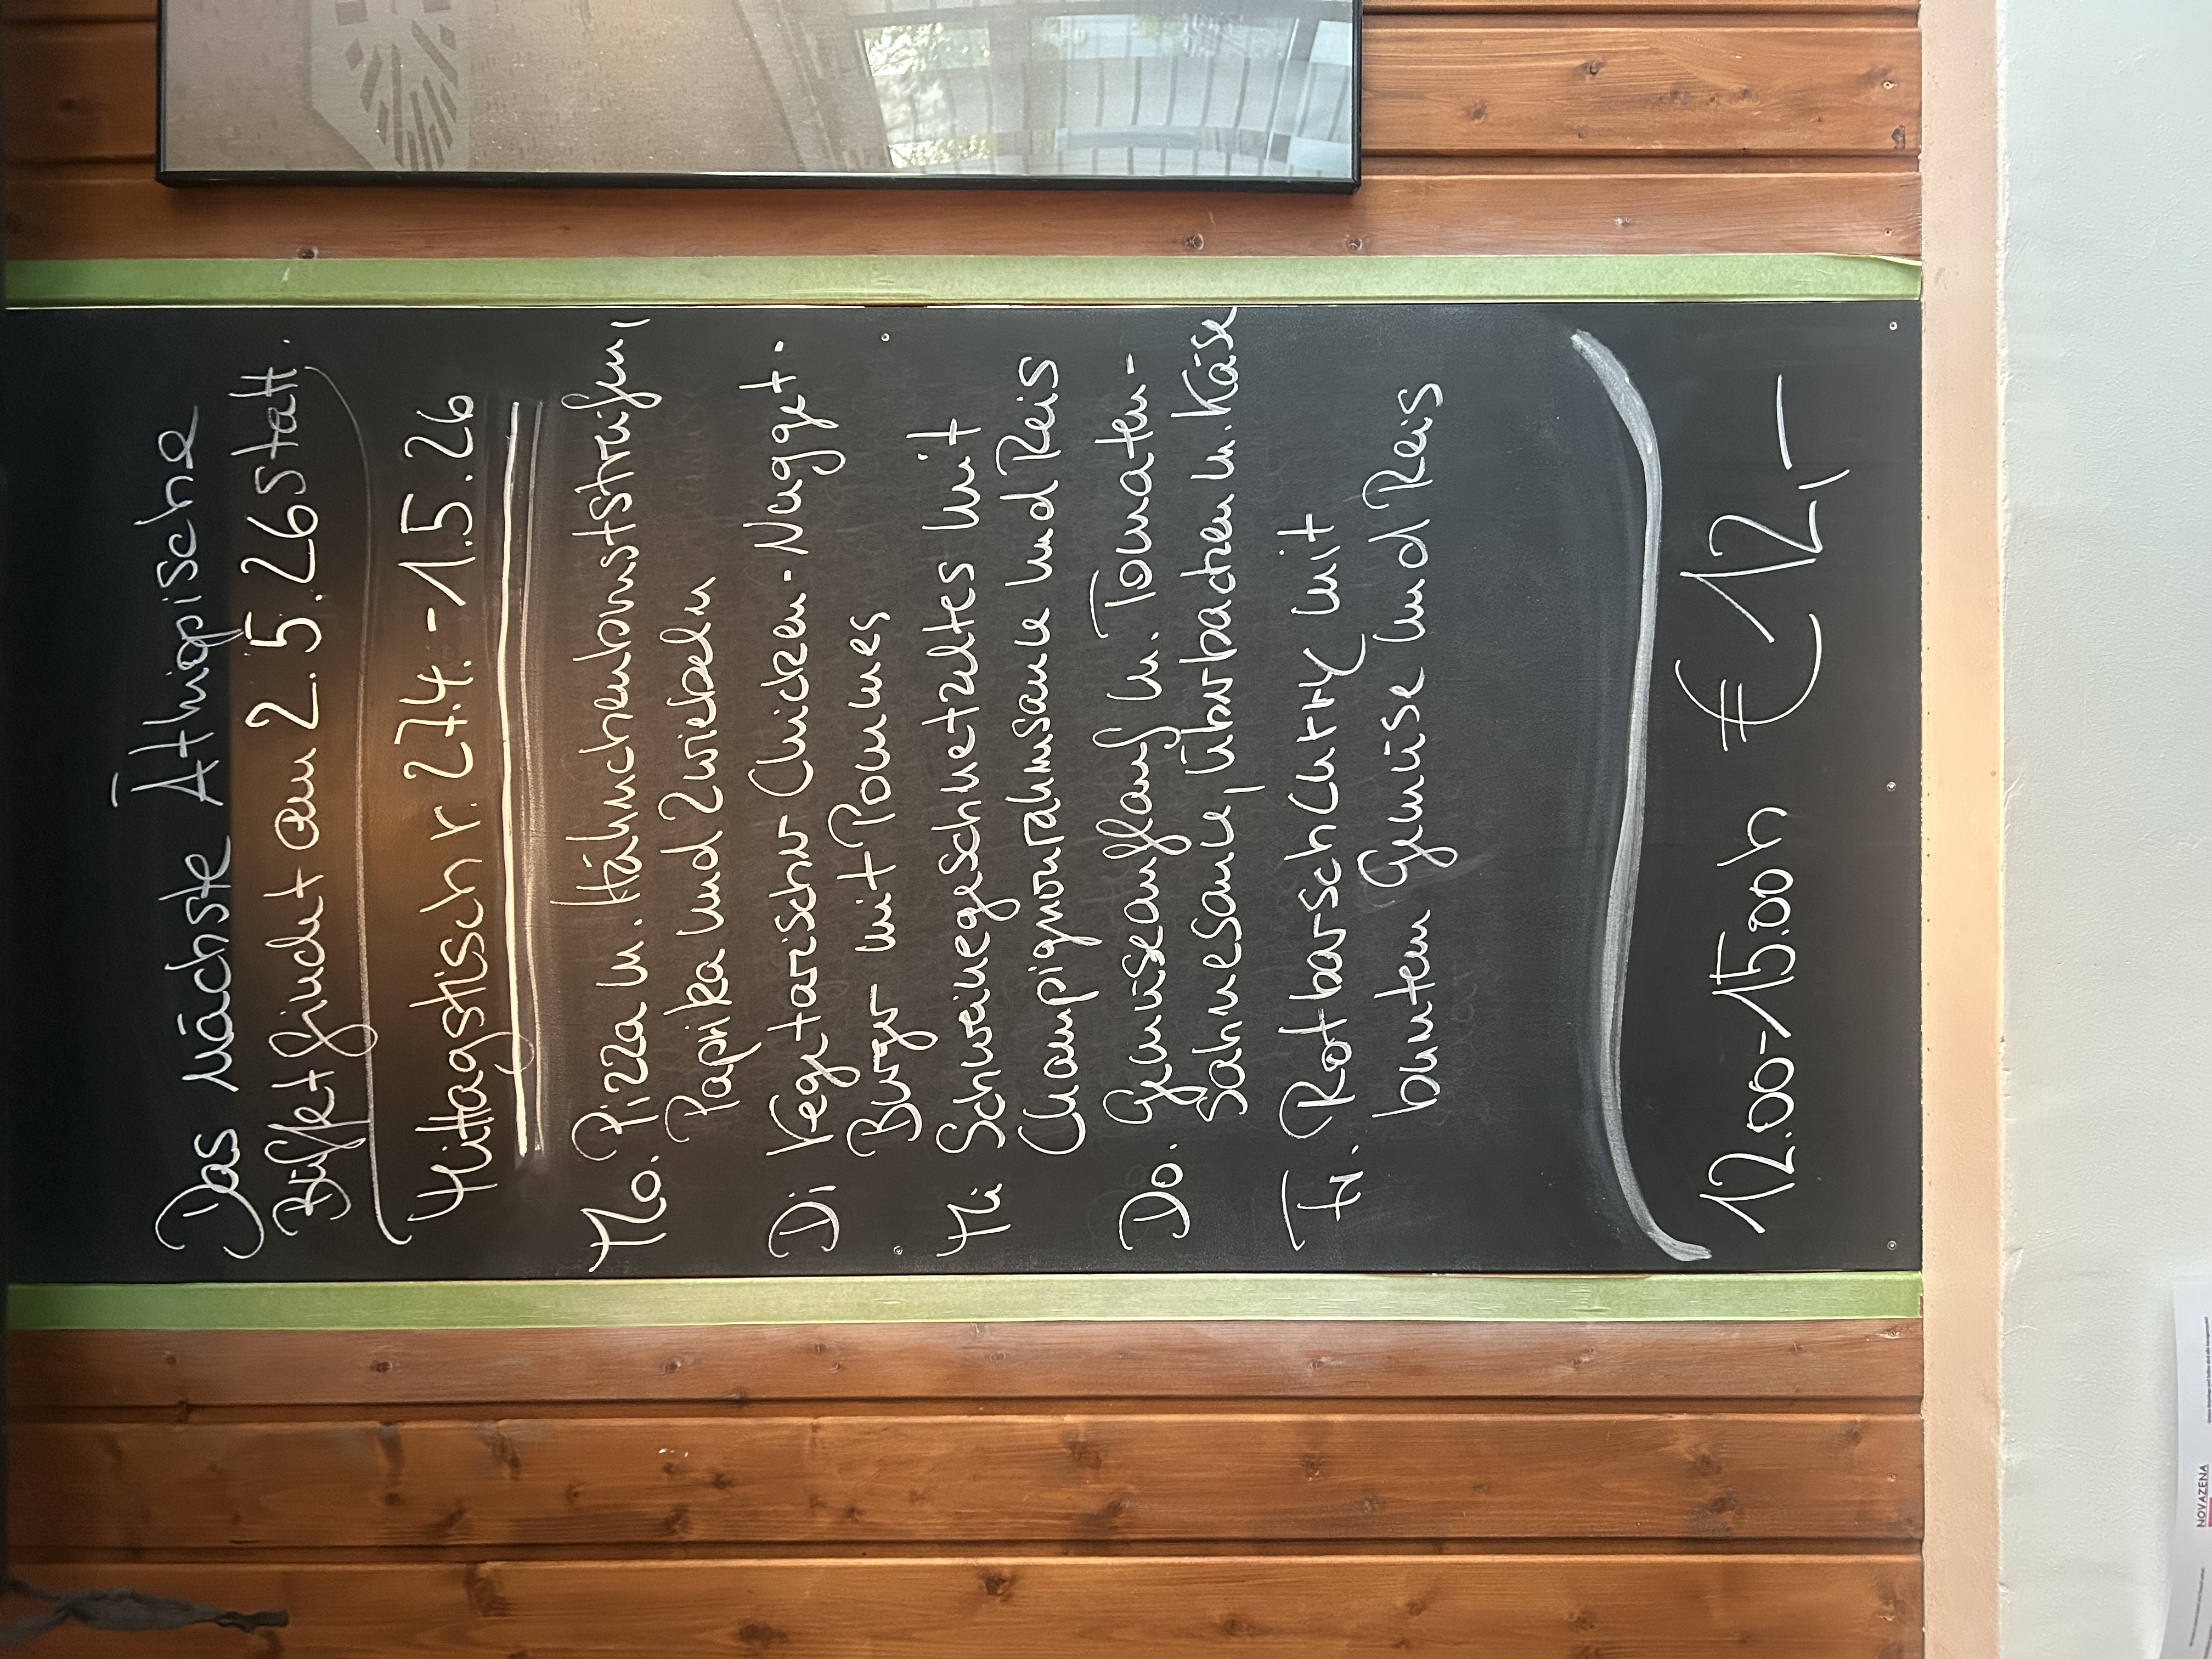 Das nächste Äthiopische
Büffet findet am 2.5.26 statt.
Mittagstisch v. 27.4. - 1.5.26
Mo. Pizza m. Hähnchenbrustsstreifen,
Paprika und Zwiebeln
Di Vegetarischer Chicken-Nugget-
Burger mit Pommes
Mi Schweinegeschnetzeltes mit
Champignonrahmsauce und Reis
Do. Gemüseauflauf m. Tomaten-
Sahnesauce, überbacken m. Käse
Fr. Rotbarschcurry mit
buntem Gemüse und Reis
12.00-15.00h € 12,-
NOVAZENA